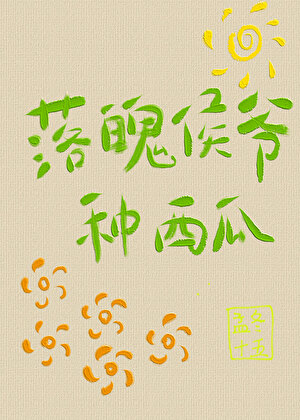 落魄侯爷
种西瓜